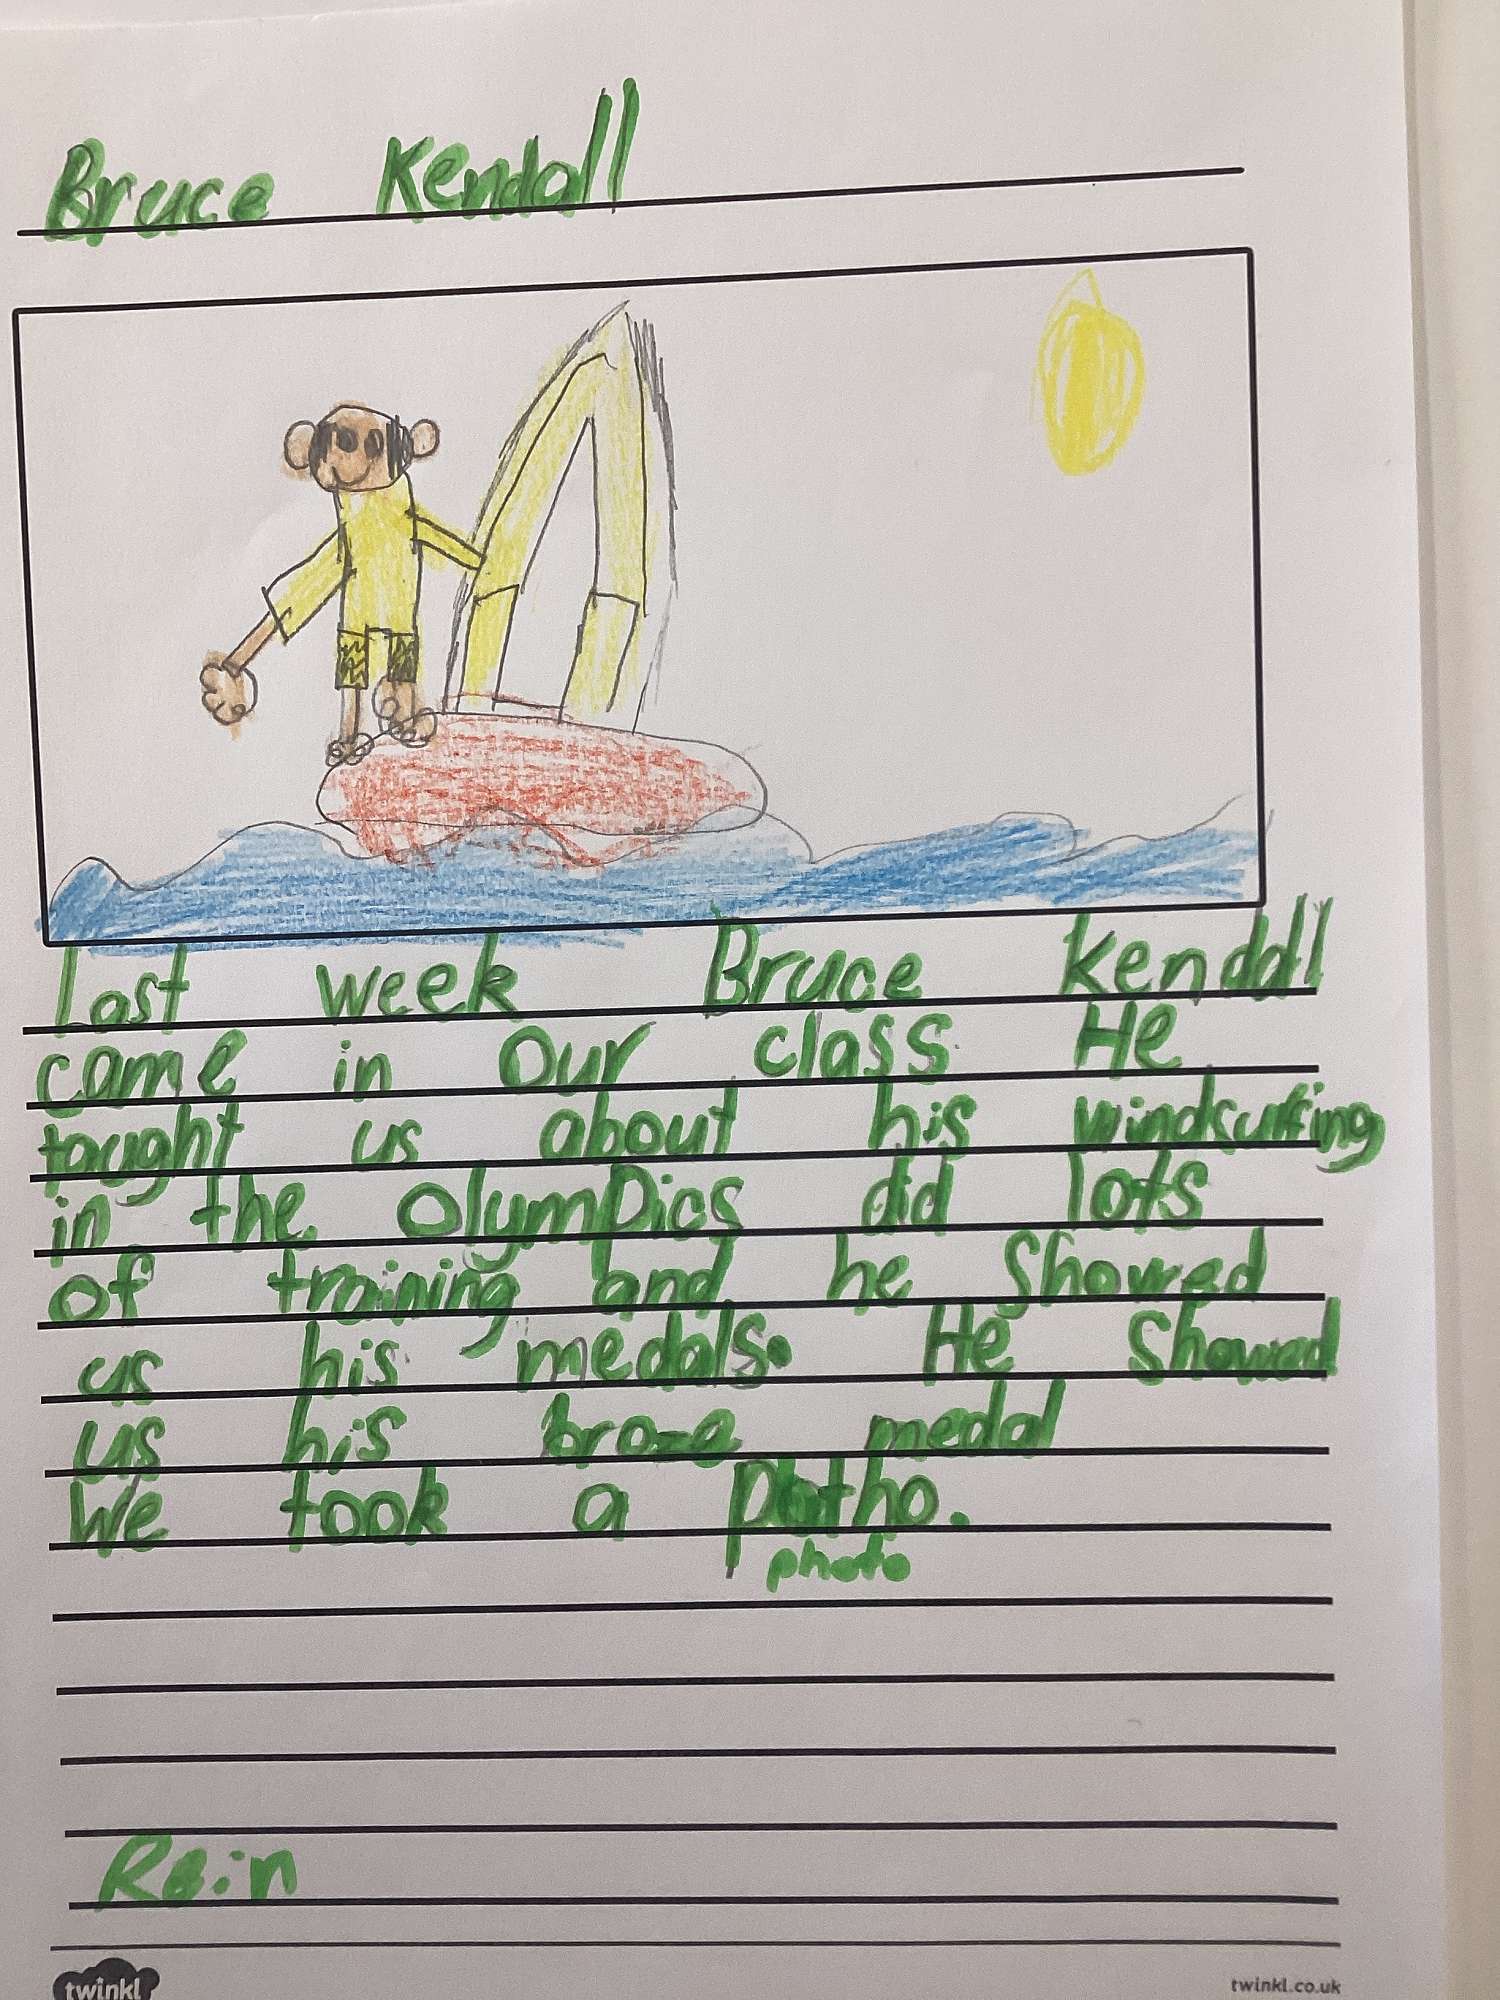 Bruce Kendall
Last week Bruce Kendall
came in our class. He
taught us about his windsurfing
in the Olympics did lots
of training and he showed
us his medals. He showed
us his broze medal
We took a photho.
photo
Rain
twinkl
twinkl.co.uk